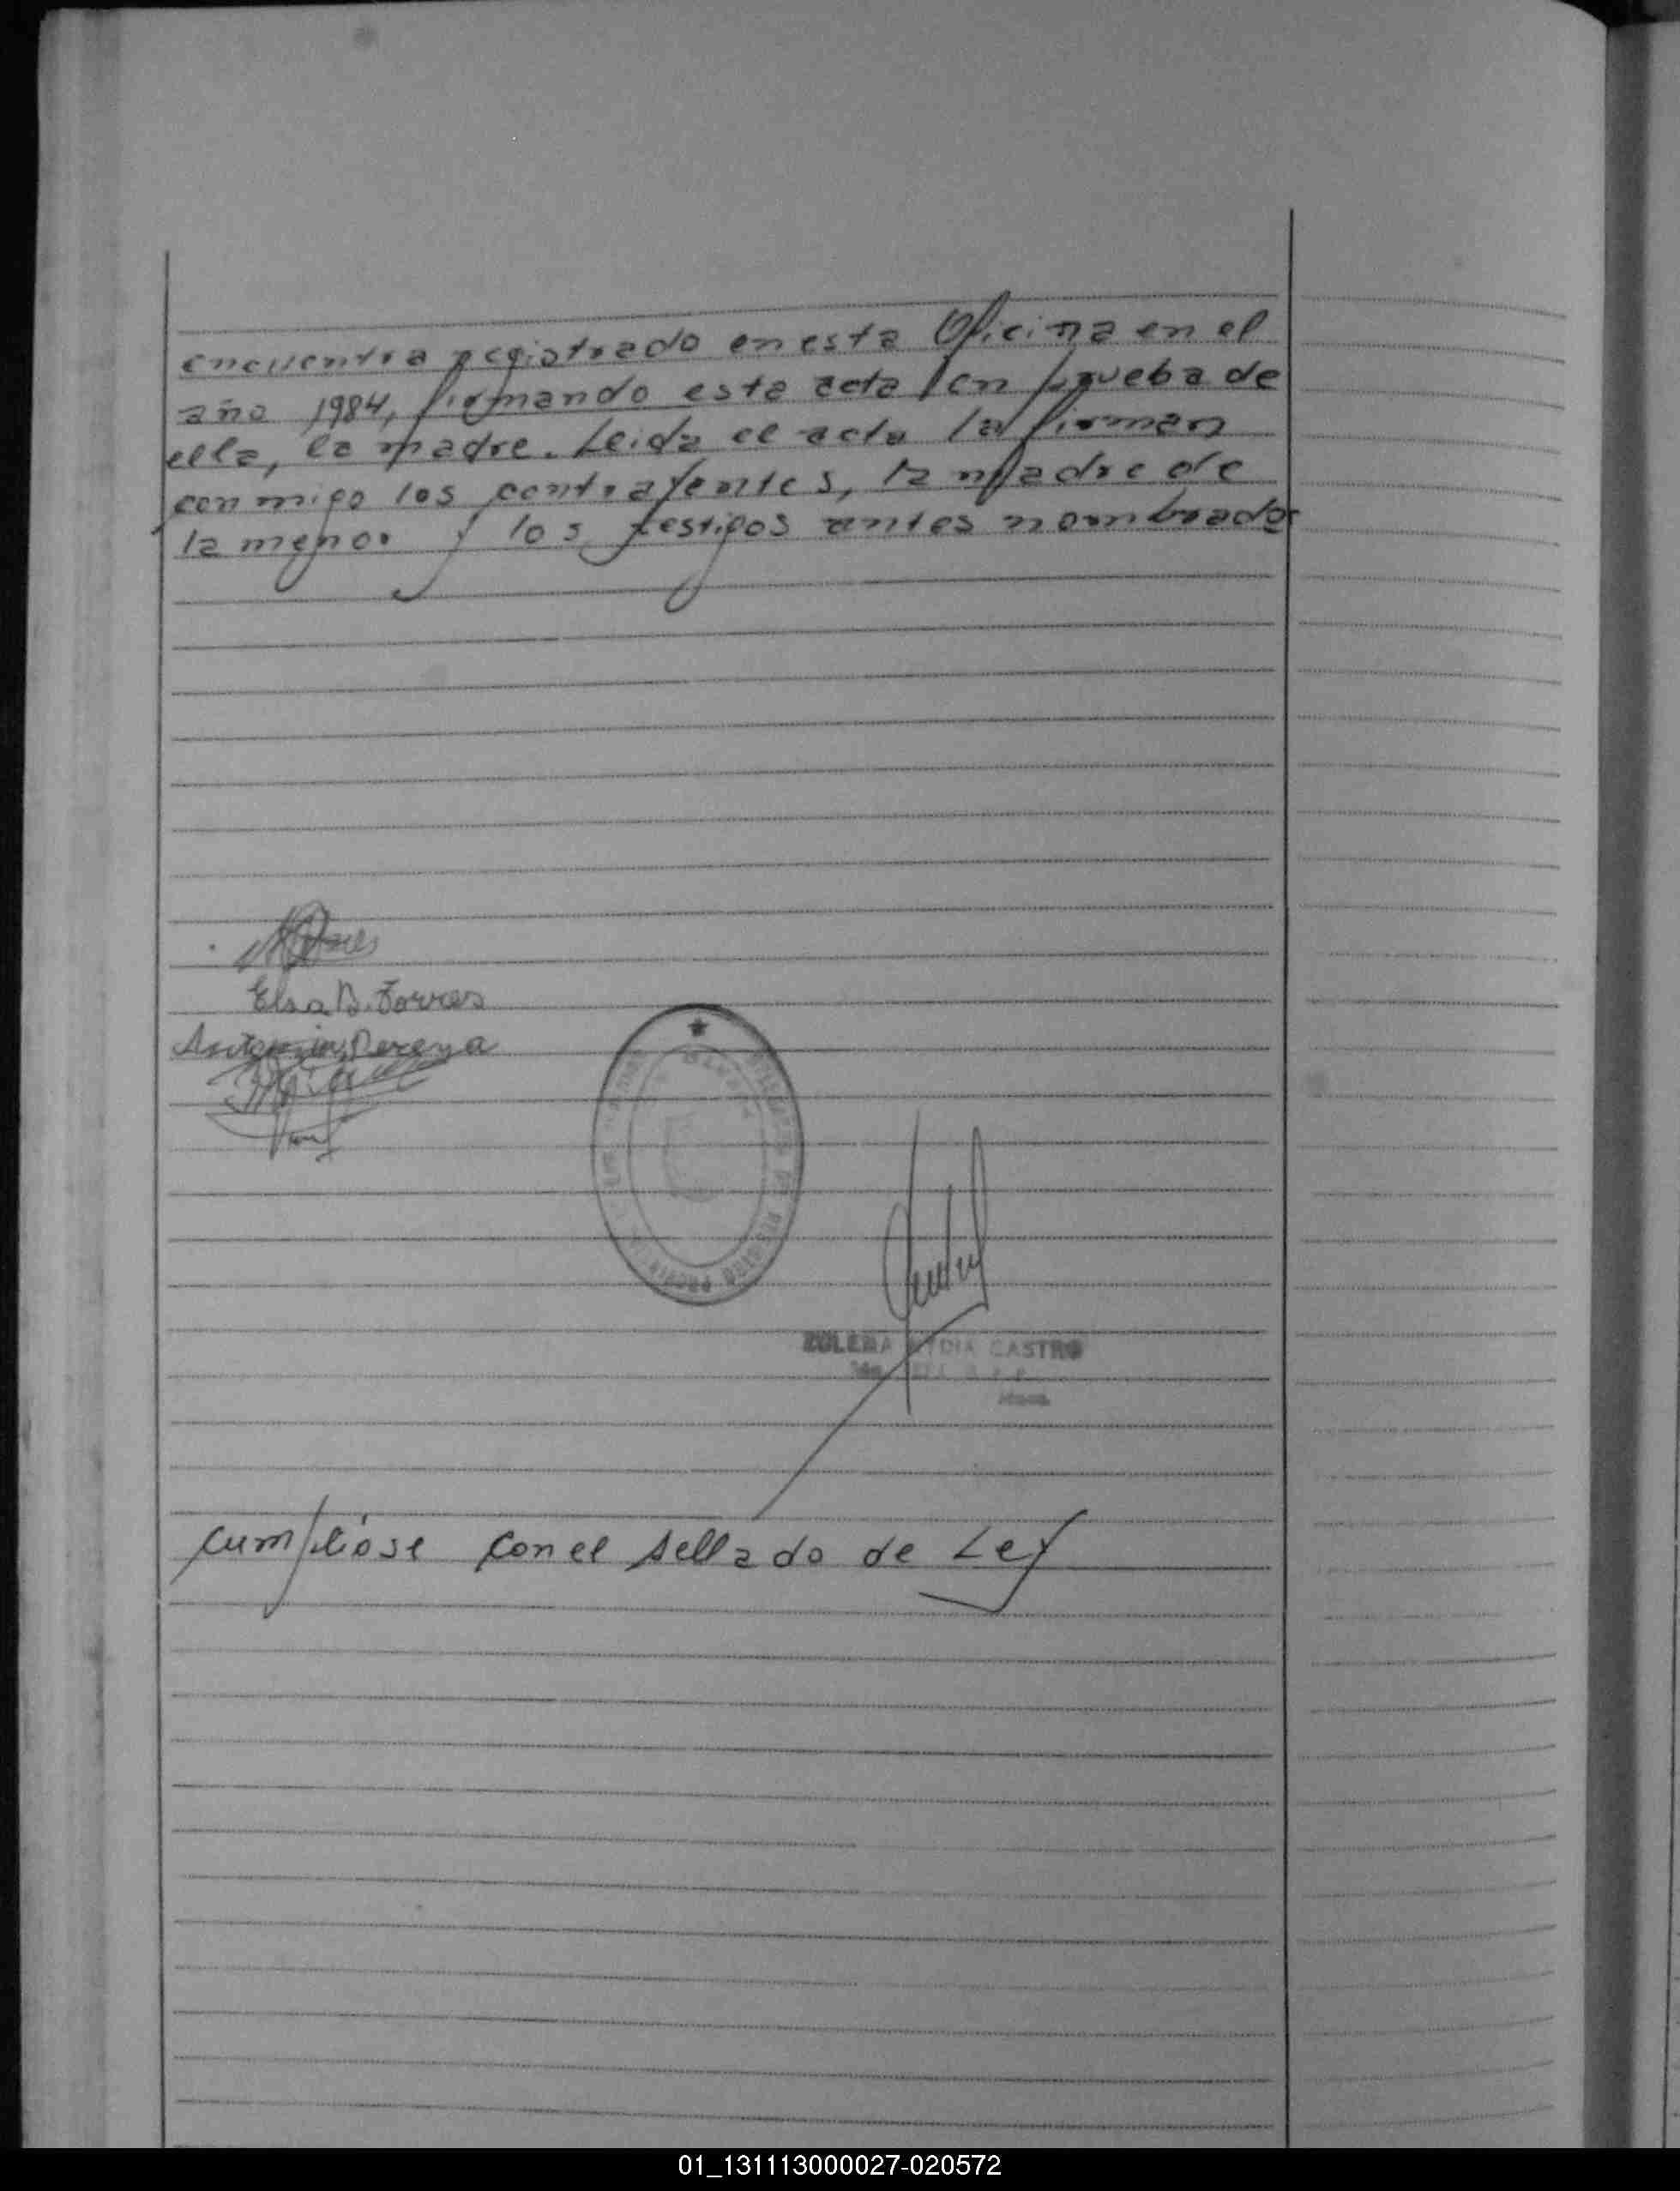 encuentra registrado en esta Oficina en el
año 1984, firmando esta acta en prueba de
ella, la madre. Leida el acta la firman
conmigo los contrayentes, la madre de
la menor y los testigos antes nombrados
Elsa B. Torres
Antonin Pereya
ZULEMA LYDIA CASTRO
Cumplióse con el sellado de Ley
01_131113000027-020572